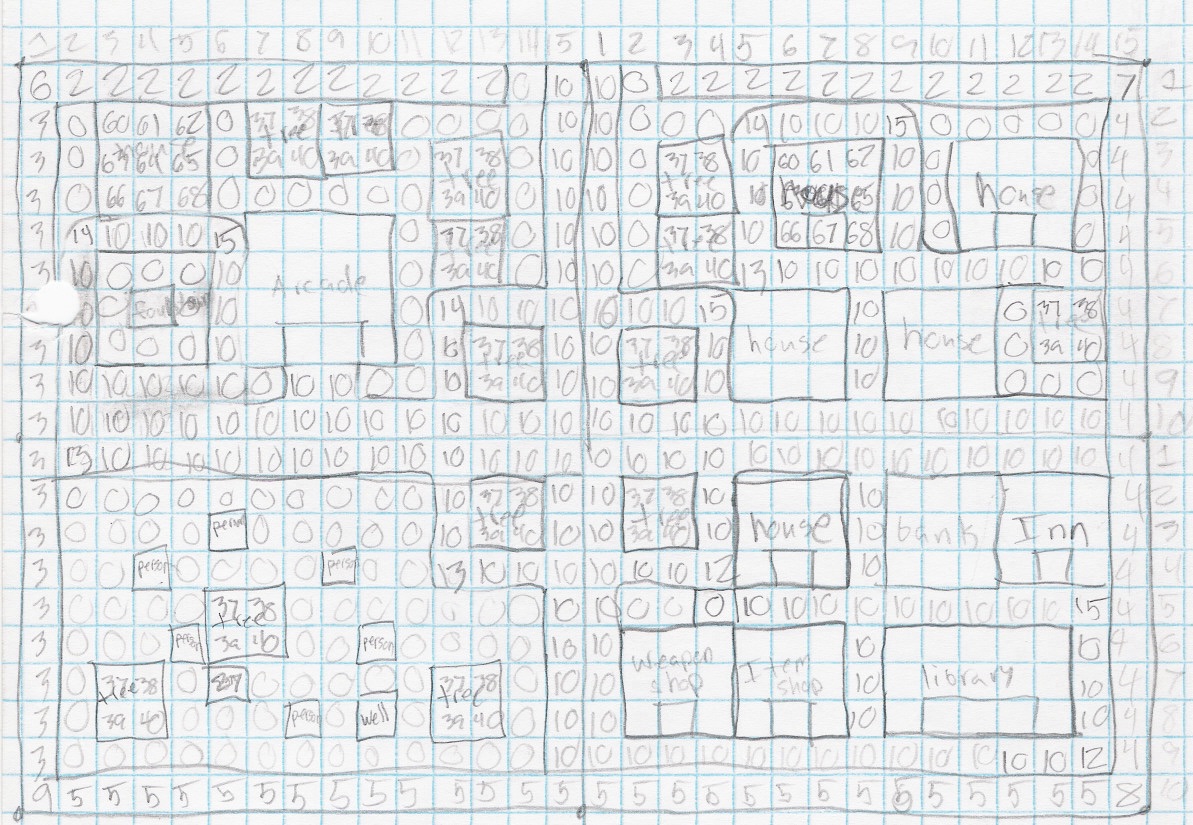 1 2 3 4 5 6 7 8 9 10 11 12 13 14 5 1 2 3 4 5 6 7 8 9 10 11 12 13 14 15
6 2 2 2 2 2 2 2 2 2 2 2 2 0 10 10 0 2 2 2 2 2 2 2 2 2 2 2 2 7 1
3 0 60 61 62 0 37 38 37 38 0 0 0 0 10 10 0 0 0 14 10 10 10 15 0 0 0 0 0 4 2
tree
3 0 63 64 65 0 39 40 39 40 0 37 38 0 10 10 0 37 38 10 60 61 62 10 0 0 4 3
tree tree
3 0 66 67 68 0 0 0 0 0 0 39 40 0 10 10 0 39 40 10 house 65 10 0 house 0 4 4
3 14 10 10 10 15 0 37 38 0 10 10 0 37 38 10 66 67 68 10 0 0 4 5
tree tree
3 10 0 0 0 10 Arcade 0 39 40 0 10 10 0 39 40 13 10 10 10 10 10 10 10 10 10 4 6
0 0 fountain 10 0 14 10 10 10 10 10 10 15 10 0 37 38 4 7
tree tree house house tree
3 10 0 0 0 10 0 10 37 38 10 10 37 38 10 10 0 39 40 4 8
3 10 10 10 10 10 0 10 10 0 0 10 39 40 10 10 39 40 10 10 0 0 0 4 9
3 10 10 10 10 10 10 10 10 10 10 10 10 10 10 10 10 10 10 10 10 10 10 10 10 10 10 10 10 4 10
3 13 10 10 10 10 10 10 10 10 10 10 10 10 10 10 10 10 10 10 10 10 10 10 10 10 10 10 10 1
3 0 0 0 0 0 0 0 0 0 0 10 37 38 10 10 37 38 10 10 4 2
person tree tree house bank Inn
3 0 0 0 0 0 0 0 0 0 10 39 40 10 10 39 40 10 10 4 3
3 0 0 person 0 0 0 0 person 0 0 13 10 10 10 10 10 10 12 10 4 4
3 0 0 0 0 37 38 0 0 0 0 0 0 0 10 10 0 0 0 10 10 10 10 10 10 10 10 10 15 4 5
tree
3 0 0 0 person 39 40 0 0 person 0 0 0 0 10 10 weapon shop Item shop 10 library 10 4 6
3 0 37 38 0 0 0 0 0 0 37 38 0 10 10 10 10 4 7
tree tree
3 0 39 40 0 0 0 person 0 well 0 39 40 0 10 10 10 10 4 8
3 0 0 0 0 0 0 0 0 0 0 0 0 0 10 10 10 10 10 10 10 10 10 10 10 10 10 10 12 4 9
9 5 5 5 5 5 5 5 5 5 5 5 5 5 5 5 5 5 5 5 5 5 5 5 5 5 5 5 5 8 10